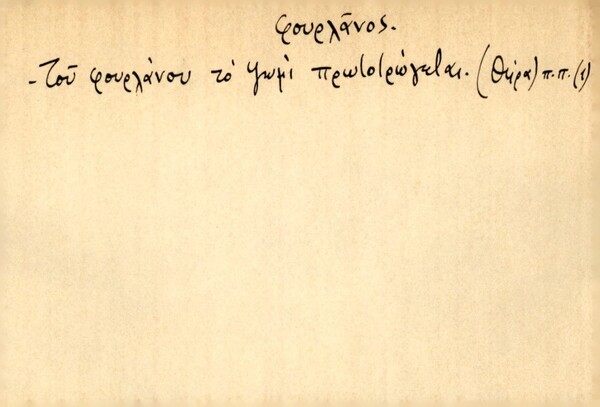 φουρλᾶνος.
- Τοῦ φουρλάνου τό ψωμί πρωτοτρώγεται. (Θήρα) π.π. (1)